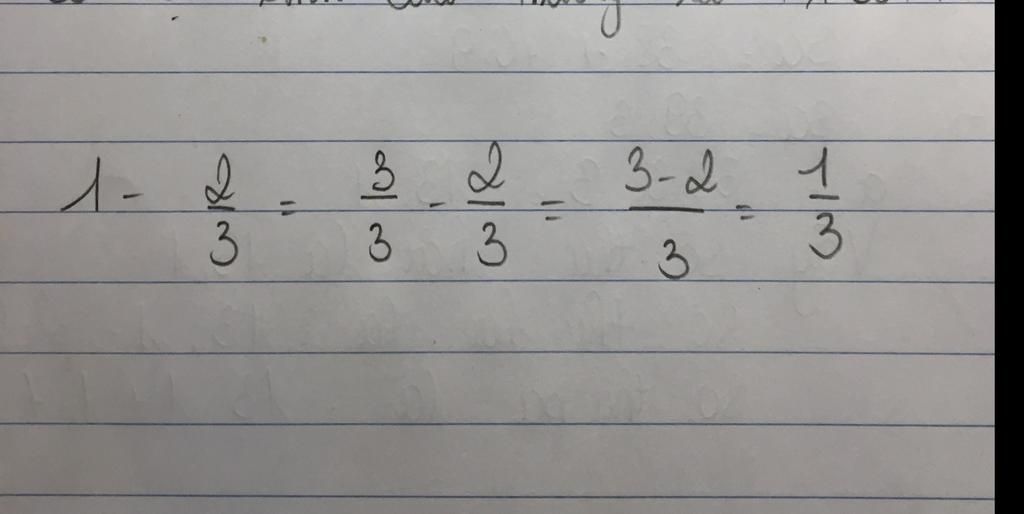 1 - 2/3 = 3/3 - 2/3 = 3-2/3 = 1/3